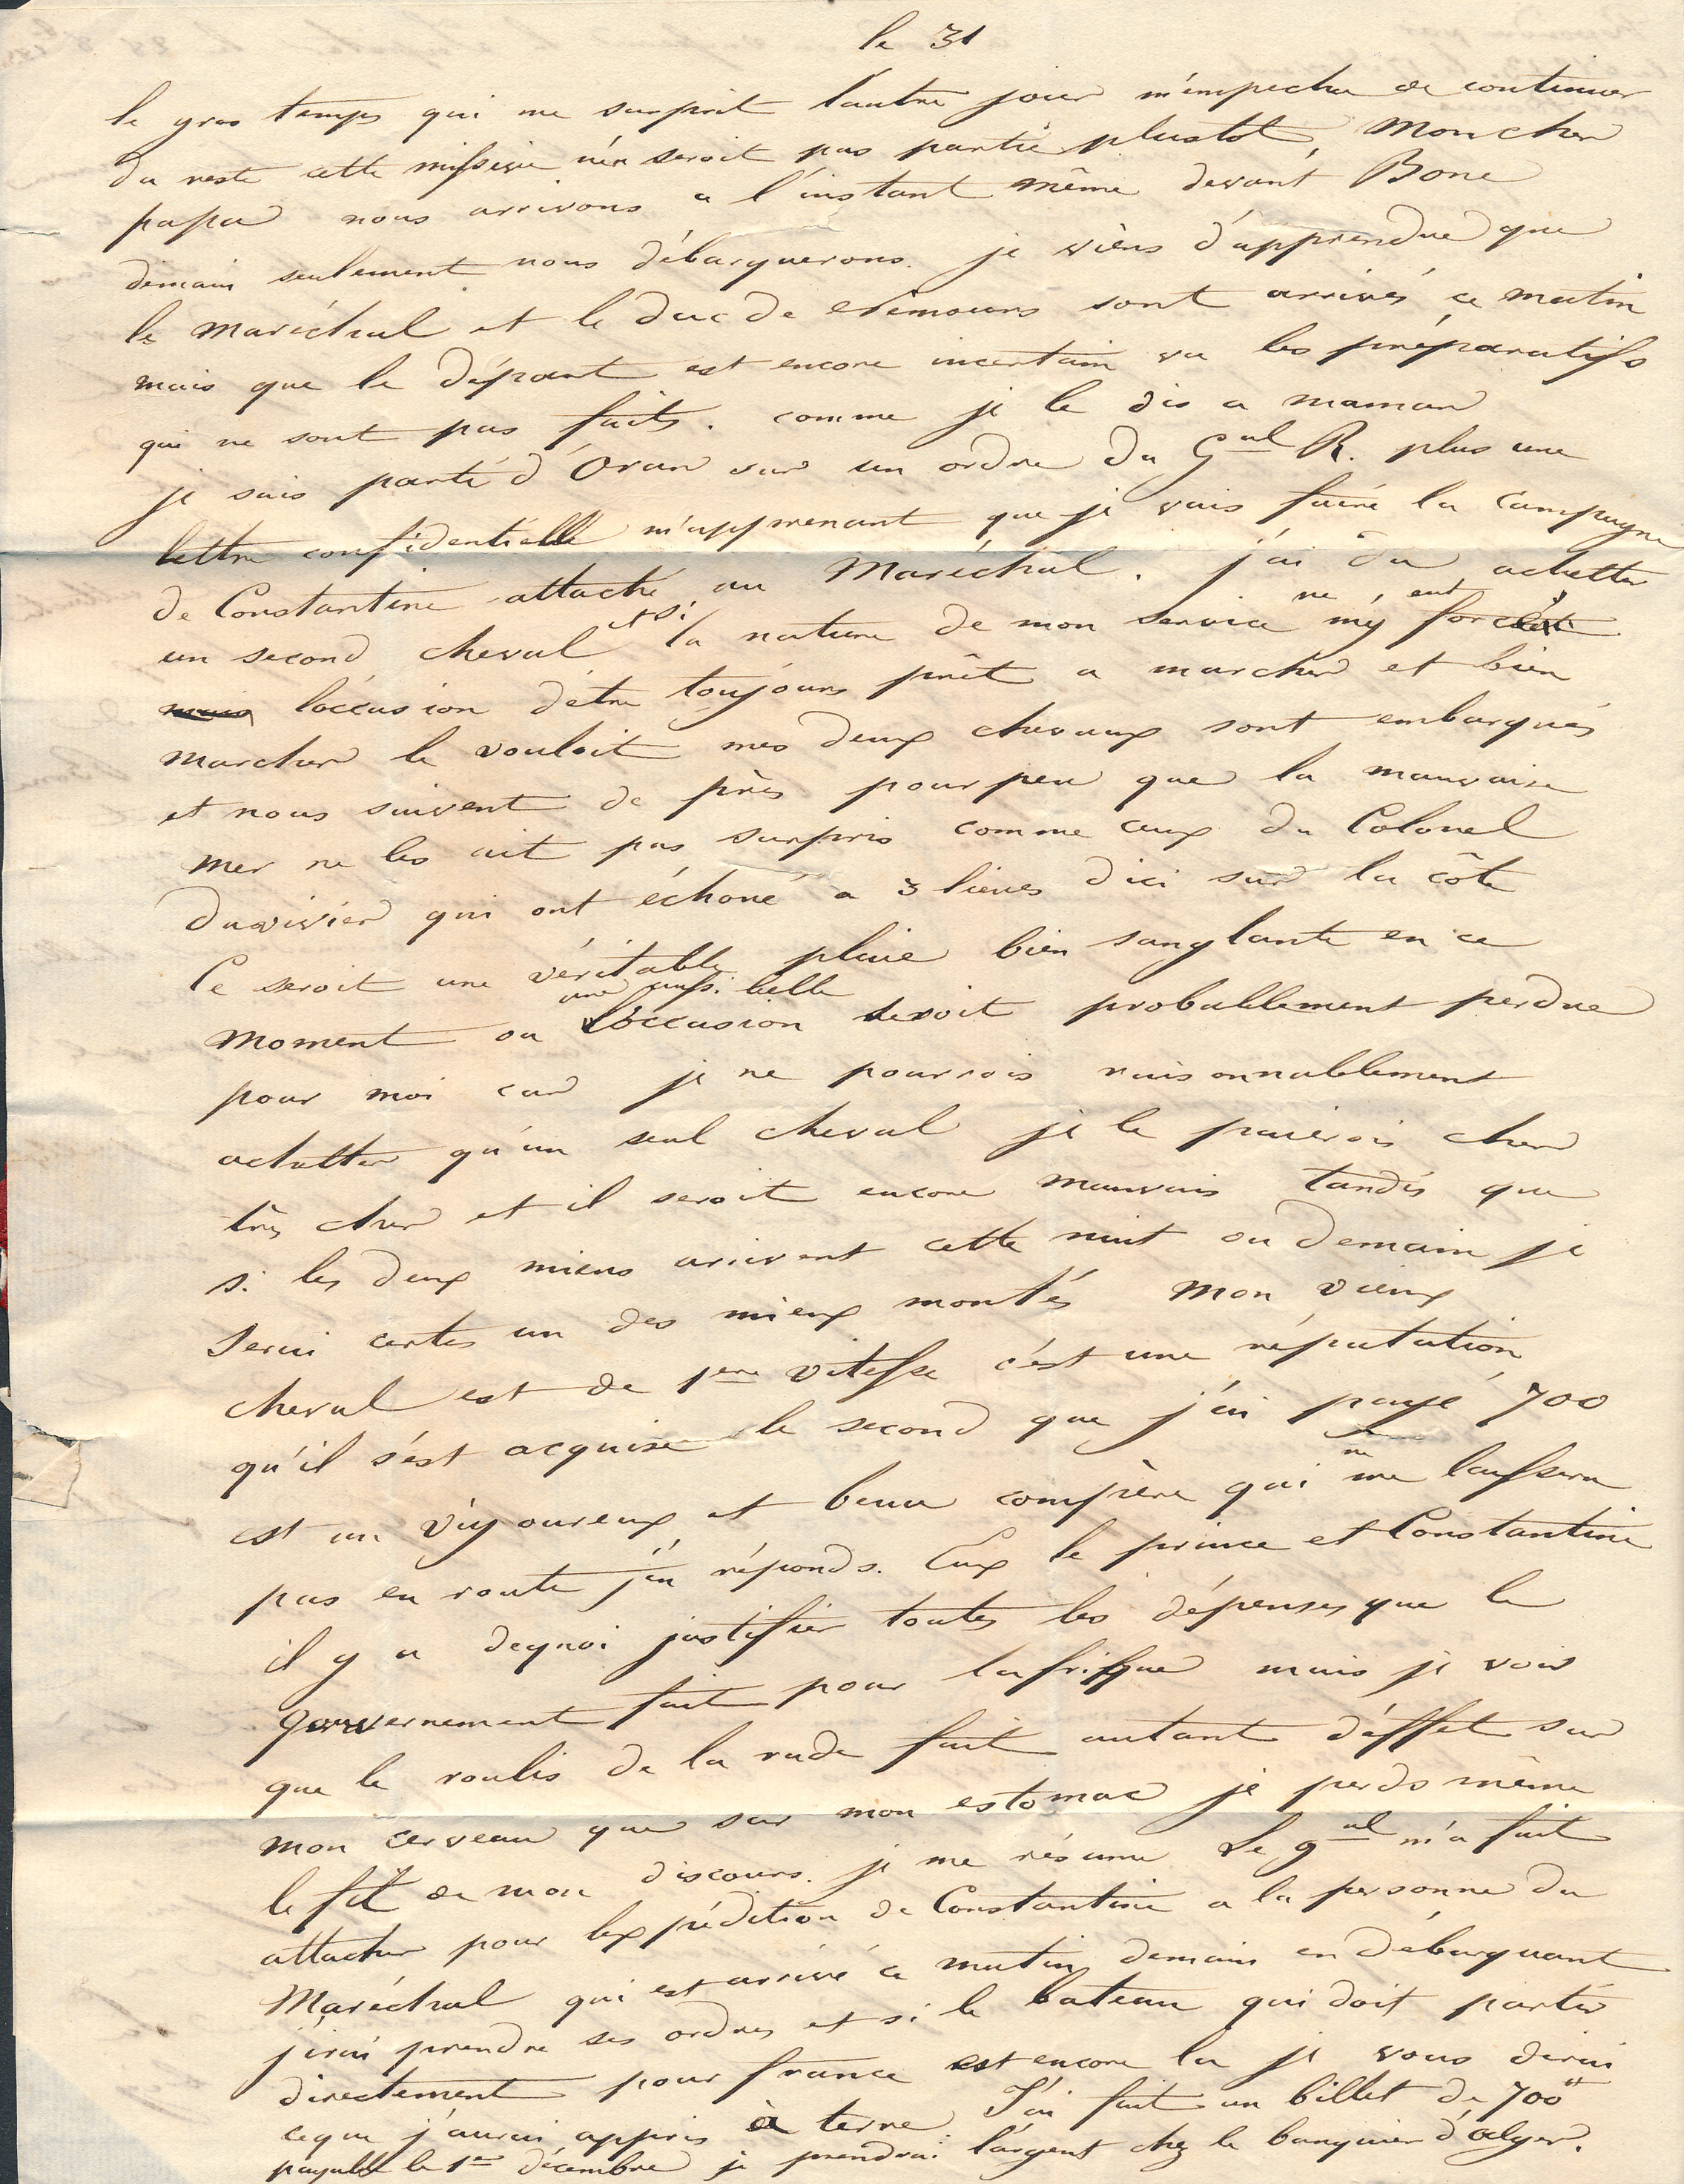 le 31
le gros temps qui me surprit l'autre jour m'empecha de continuer
du reste cette missive n'en seroit pas partie plustot, Mon cher
papa nous arrivons a l'instant même devant Bone
demain seulement nous débarquerons. je viens d'apprendre que
le Maréchal et le duc de Nemours sont arrivés ce matin
mais que le départ est encore incertain vu les préparatifs
qui ne sont pas faits. comme je le dis a maman
je suis parti d'Oran sur un ordre du Gal R. plus une
lettre confidentielle m'apprenant que je vais faire la campagne
de Constantine attaché au Maréchal. j'ai du achetter
un second cheval et si la nature de mon service ne m'y eut forcé
l'occasion d'être toujours prêt a marcher et bien
marcher le vouloit mes deux chevaux sont embarqués
et nous suivent de près pour peu que la mauvaise
mer ne les ait pas surpris comme ceux du Colonel
Duvivier qui ont échoué a 3 lieues d'ici sur la côte
Ce seroit une véritable plaie bien sanglante en ce
moment ou une aussi belle occasion seroit probablement perdue
pour moi car je ne pourrois raisonnablement
achetter qu'un seul cheval je le paierois cher
très cher et il seroit encore mauvais tandis que
si les deux miens arrivent cette nuit ou demain je
serai certes un des mieux montés Mon vieux
cheval est de 1ere vitesse c'est une réputation
qu'il s'est acquise le second que j'ai payé 700
est un vigoureux et beau compère qui ne me laissera
pas en route j'en réponds. Eux le prince et Constantine
il y a dequoi justifier toutes les dépenses que le
gouvernement fait pour lafrique mais je vois
que le roulis de la rade fait autant d'effet sur
mon cerveau que sur mon estomac je perds même
le fil de mon discours. je me résume Le gal m'a fait
attacher pour lexpédition de Constantine a la personne du
Maréchal qui est arrivé ce matin demain en débarquant
j'irai prendre ses ordres et si le bateau qui doit partir
directement pour france est encore la je vous dirai
ceque j'aurai appris à terre J'ai fait un billet de 700tt
payable le 1er décembre je prendrai l'argent chez le banquier d'alger.